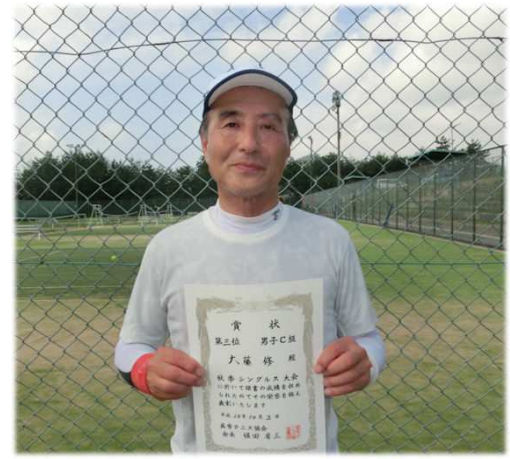 賞 状
第三位 男子C組
大藤 修 殿
秋季シングルス大会
に於いて頭書の成績を収め
られたのでその栄誉を称え
表彰いたします
平成
テニス協会
会長